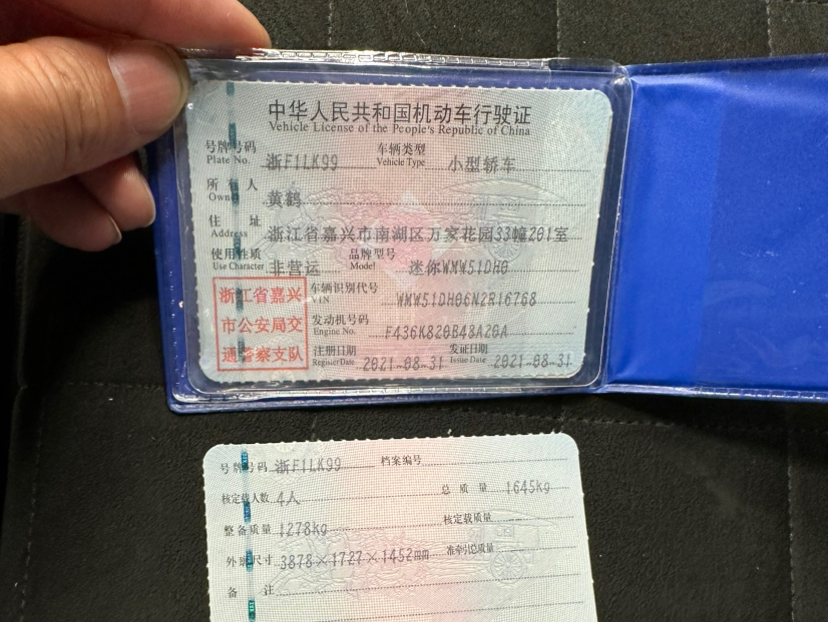 中华人民共和国机动车行驶证
Vehicle License of the People's Republic of China
号牌号码 浙F1LK99 车辆类型 小型轿车
Plate No. Vehicle Type
所有人 黄鹤
Owner
住址 浙江省嘉兴市南湖区万家花园33幢201室
Address
使用性质 非营运 品牌型号 迷你WMW51DH0
Use Character Model
浙江省嘉兴
市公安局交
通警察支队
车辆识别代号 WMW51DH06N2R16768
VIN
发动机号码 F436K820B48A20A
Engine No.
注册日期 2021-08-31 发证日期 2021-08-31
Register Date Issue Date
号牌号码 浙F1LK99 档案编号
核定载人数 4人 总质量 1645kg
整备质量 1278kg 核定载质量
外廓尺寸 3878×1727×1452mm 准牵引总质量
备注